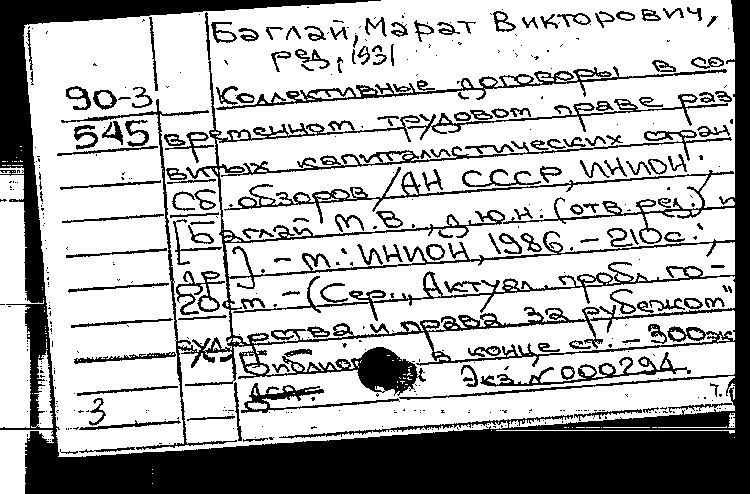 Баглай, Марат Викторович,
ред., 1931
90-3 Коллективные договоры в со-
545 временном трудовом праве раз-
витых капиталистических стран:
Сб. обзоров / АН СССР, ИНИОН;
[Баглай М.В., д.ю.н. (отв. ред.) и
др.]. - М.: ИНИОН, 1986. - 210с.;
20см. - (Сер. „Актуал. пробл. го-
сударства и права за рубежом"
Библиог в конце ст. - 300эк
Экз. N 000294.
3